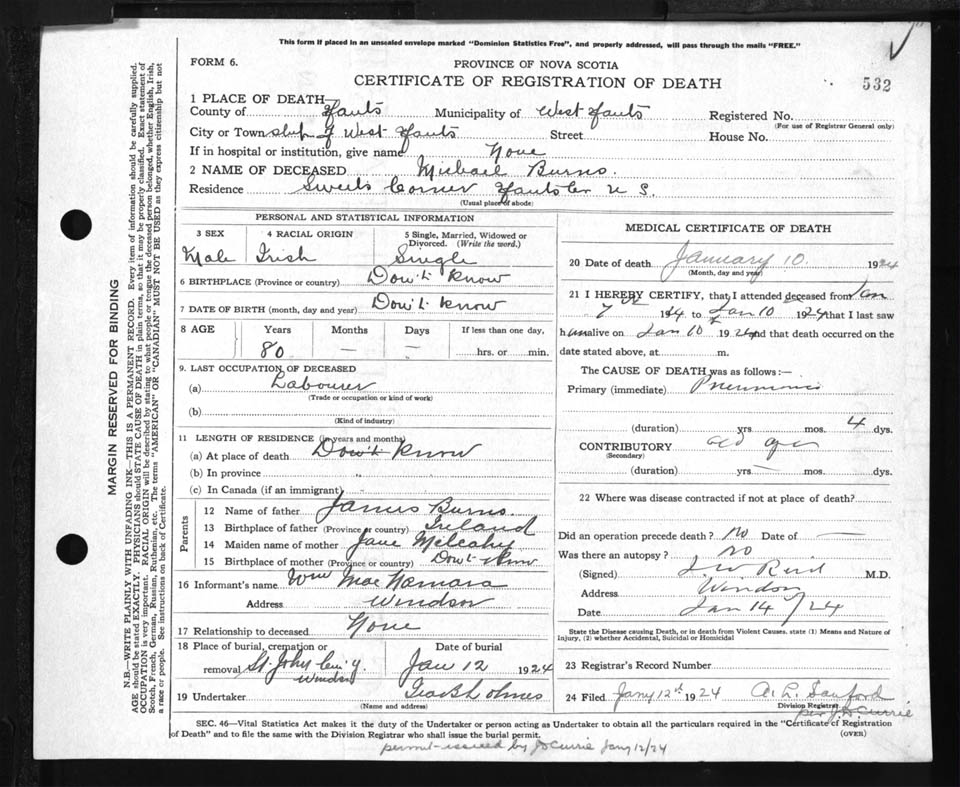 This form if placed in an unsealed envelope marked "Dominion Statistics Free", and properly addressed, will pass through the mails "FREE."
FORM 6.
PROVINCE OF NOVA SCOTIA
CERTIFICATE OF REGISTRATION OF DEATH
532
1 PLACE OF DEATH—
County of Hants Municipality of West Hants Registered No.
(For use of Registrar General only)
City or Town ship of West Hants Street House No.
If in hospital or institution, give name None
2 NAME OF DECEASED Michael Burns.
Residence Sweets Corner Hants Co N S.
(Usual place of abode)
PERSONAL AND STATISTICAL INFORMATION
3 SEX 4 RACIAL ORIGIN 5 Single, Married, Widowed or Divorced. (Write the word.)
Male Irish Single
6 BIRTHPLACE (Province or country) Don't Know
7 DATE OF BIRTH (month, day and year) Don't Know
8 AGE Years Months Days If less than one day,
80 — — hrs. or min.
9. LAST OCCUPATION OF DECEASED
(a) Labourer
(Trade or occupation or kind of work)
(b)
(Kind of industry)
11 LENGTH OF RESIDENCE (in years and months)
(a) At place of death Don't Know
(b) In province
(c) In Canada (if an immigrant)
Parents
12 Name of father James Burns.
13 Birthplace of father (Province or country) Ireland
14 Maiden name of mother Jane Melcahy
15 Birthplace of mother (Province or country) Don't Know
16 Informant's name Wm MacNamara
Address Windsor
17 Relationship to deceased None
18 Place of burial, cremation or removal St. John Cem'y. Windsor
Date of burial Jan 12 1924
19 Undertaker Geo B Lohnes
(Name and address)
MEDICAL CERTIFICATE OF DEATH
20 Date of death January 10. 1924
(Month, day and year)
21 I HEREBY CERTIFY, that I attended deceased from Jan
7 to Jan 10 1924 that I last saw
h im alive on Jan 10 1924 and that death occurred on the
date stated above, at m.
The CAUSE OF DEATH was as follows:—
Primary (immediate) Pneumonia
(duration) yrs mos. 4 dys.
CONTRIBUTORY old age
(Secondary)
(duration) yrs — mos. dys.
22 Where was disease contracted if not at place of death?
Did an operation precede death? No Date of —
Was there an autopsy? No
(Signed) J W Reid M.D.
Address Windsor
Date Jan 14 /24
State the Disease causing Death, or in death from Violent Causes, state (1) Means and Nature of
Injury, (2) whether Accidental, Suicidal or Homicidal
23 Registrar's Record Number
24 Filed Jany 12th 1924 A. L. Sanford
Division Registrar
per J D Currie
SEC. 46—Vital Statistics Act makes it the duty of the Undertaker or person acting as Undertaker to obtain all the particulars required in the "Certificate of Registration
of Death" and to file the same with the Division Registrar who shall issue the burial permit.
(OVER)
permit issued by JD Currie Jany 12/24
MARGIN RESERVED FOR BINDING
N.B.—WRITE PLAINLY WITH UNFADING INK—THIS IS A PERMANENT RECORD. Every item of information should be carefully supplied.
AGE should be stated EXACTLY. PHYSICIANS should STATE CAUSE OF DEATH in plain terms, so that it may be properly classified. Exact statement of
OCCUPATION is very important. RACIAL ORIGIN will be described by stating to what people or tongue the deceased person belonged, whether English, Irish,
Scotch, French, German, Russian, Ruthenian, etc. The terms "AMERICAN" OR "CANADIAN" MUST NOT BE USED as they express citizenship but not
a race or people. See instructions on back of Certificate.